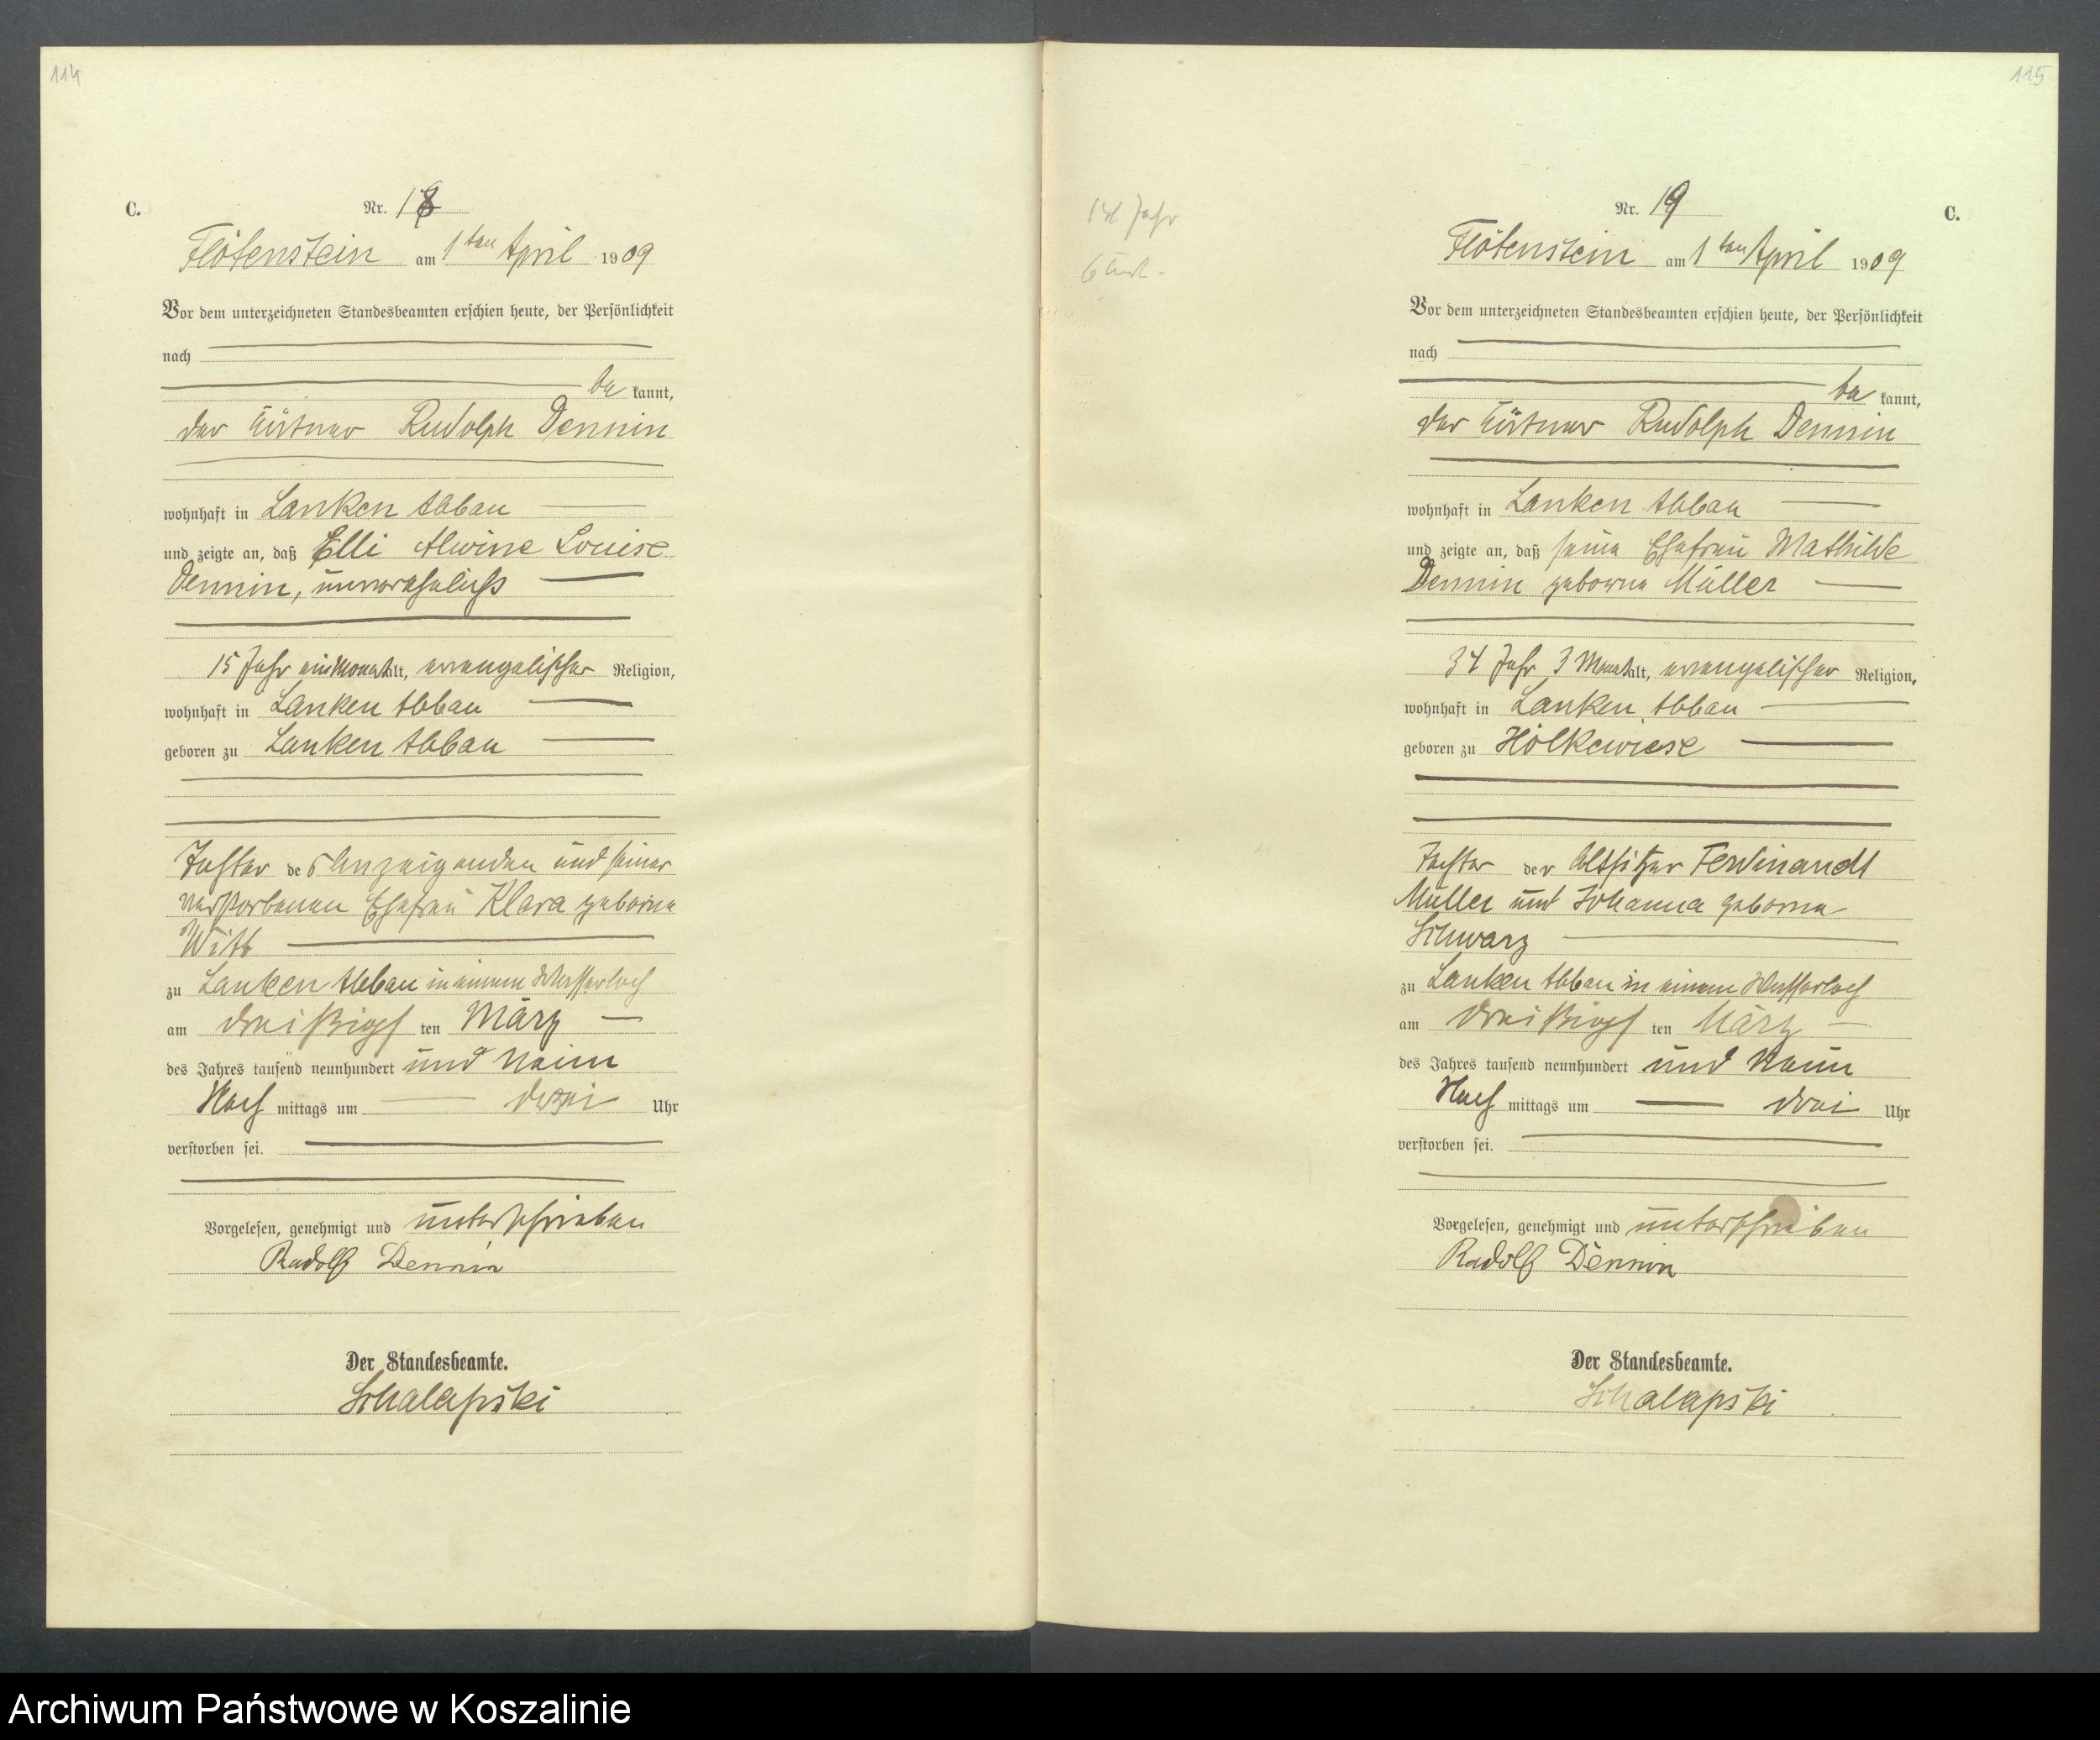 114
C.
Nr. 18
Flötenstein am 1ten April 1909
Vor dem unterzeichneten Standesbeamten erschien heute, der Persönlichkeit
nach
be kannt,
der Rudolph Dennin
wohnhaft in Lanken Abbau
und zeigte an, daß Elli Alwine Louise
Dennin, unverehelicht
15 Jahr ein Monat alt, evangelischer Religion,
wohnhaft in Lanken Abbau
geboren zu Lanken Abbau
Tochter des Anzeigenden und seiner
verstorbenen Ehefrau Klara geborne
Witt
zu Lanken Abbau in einem Wasserloch
am dreißigst ten März
des Jahres tausend neunhundert und neun
Nach mittags um drei Uhr
verstorben sei.
Vorgelesen, genehmigt und unterschrieben
Rudolf Dennin
Der Standesbeamte.
Schalapski
115
14 Jahr
C.
Nr. 19
Flötenstein am 1ten April 1909
Vor dem unterzeichneten Standesbeamten erschien heute, der Persönlichkeit
nach
be kannt,
der Rudolph Dennin
wohnhaft in Lanken Abbau
und zeigte an, daß seine Ehefrau Mathilde
Dennin geborne Müller
34 Jahr 3 Monat alt, evangelischer Religion,
wohnhaft in Lanken Abbau
geboren zu Hölkewiese
Tochter der Altsitzer Ferdinandt
Müller und Johanna geborne
Schwarz
zu Lanken Abbau in einem Wasserloch
am dreißigst ten März
des Jahres tausend neunhundert und neun
Nach mittags um drei Uhr
verstorben sei.
Vorgelesen, genehmigt und unterschrieben
Rudolf Dennin
Der Standesbeamte.
Schalapski
Archiwum Państwowe w Koszalinie